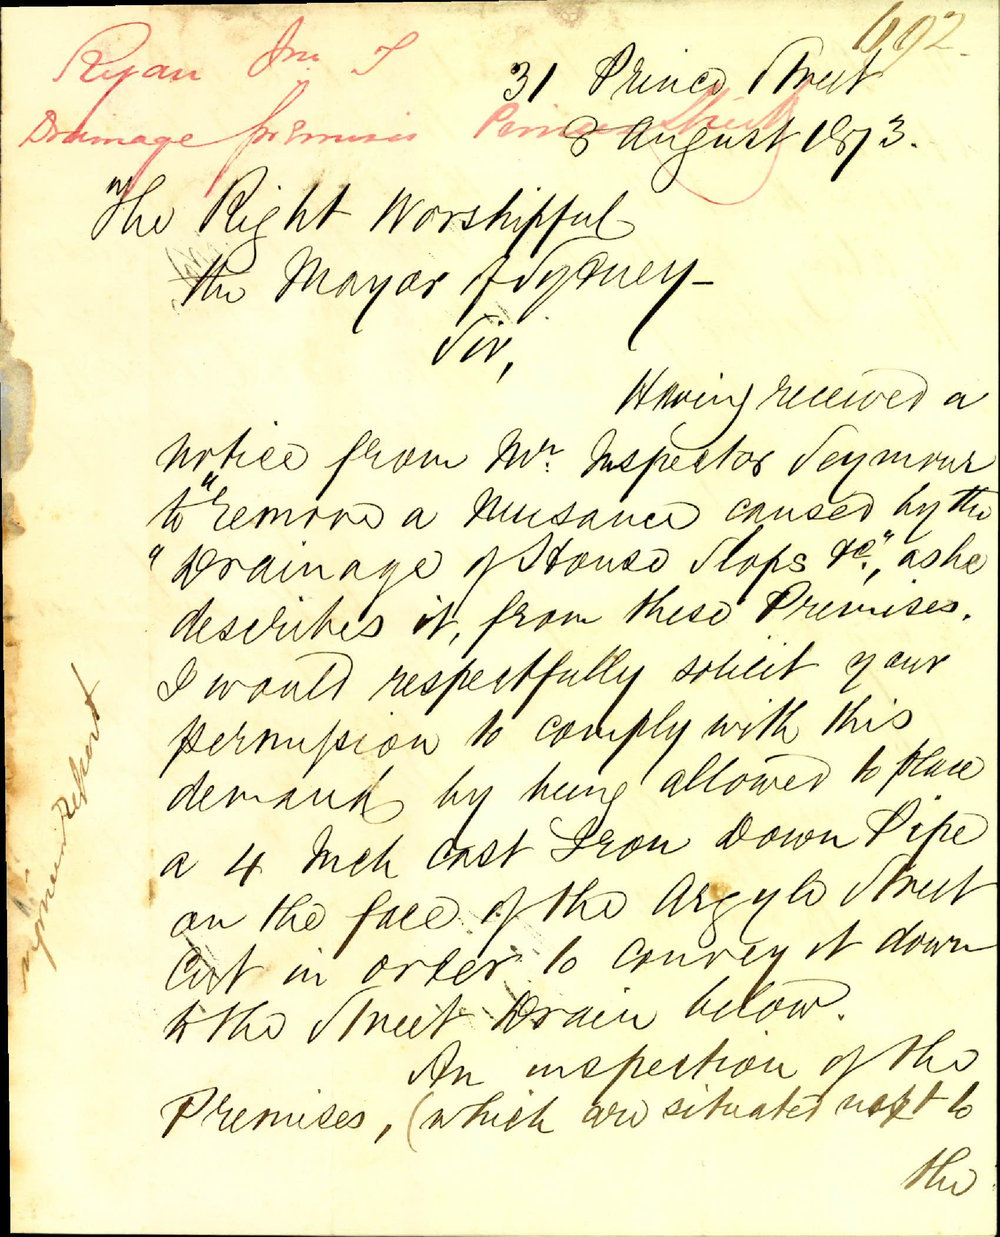 692
Ryan Jno. T
Drainage premises Princes Street
31 Princes Street
8 August 1873.
The Right Worshipful
the Mayor of Sydney -
Sir,
Having received a
notice from Mr. Inspector Seymour
to "remove a Nuisance caused by the
"Drainage of House Slops &c", as he
describes it, from these Premises.
I would respectfully solicit your
permission to comply with this
demand by being allowed to place
a 4 Inch Cast Iron Down Pipe
on the face of the Argyle Street
Cut in order to convey it down
to the Street Drain below.
An inspection of the
Premises, (which are situated next to
the
Report